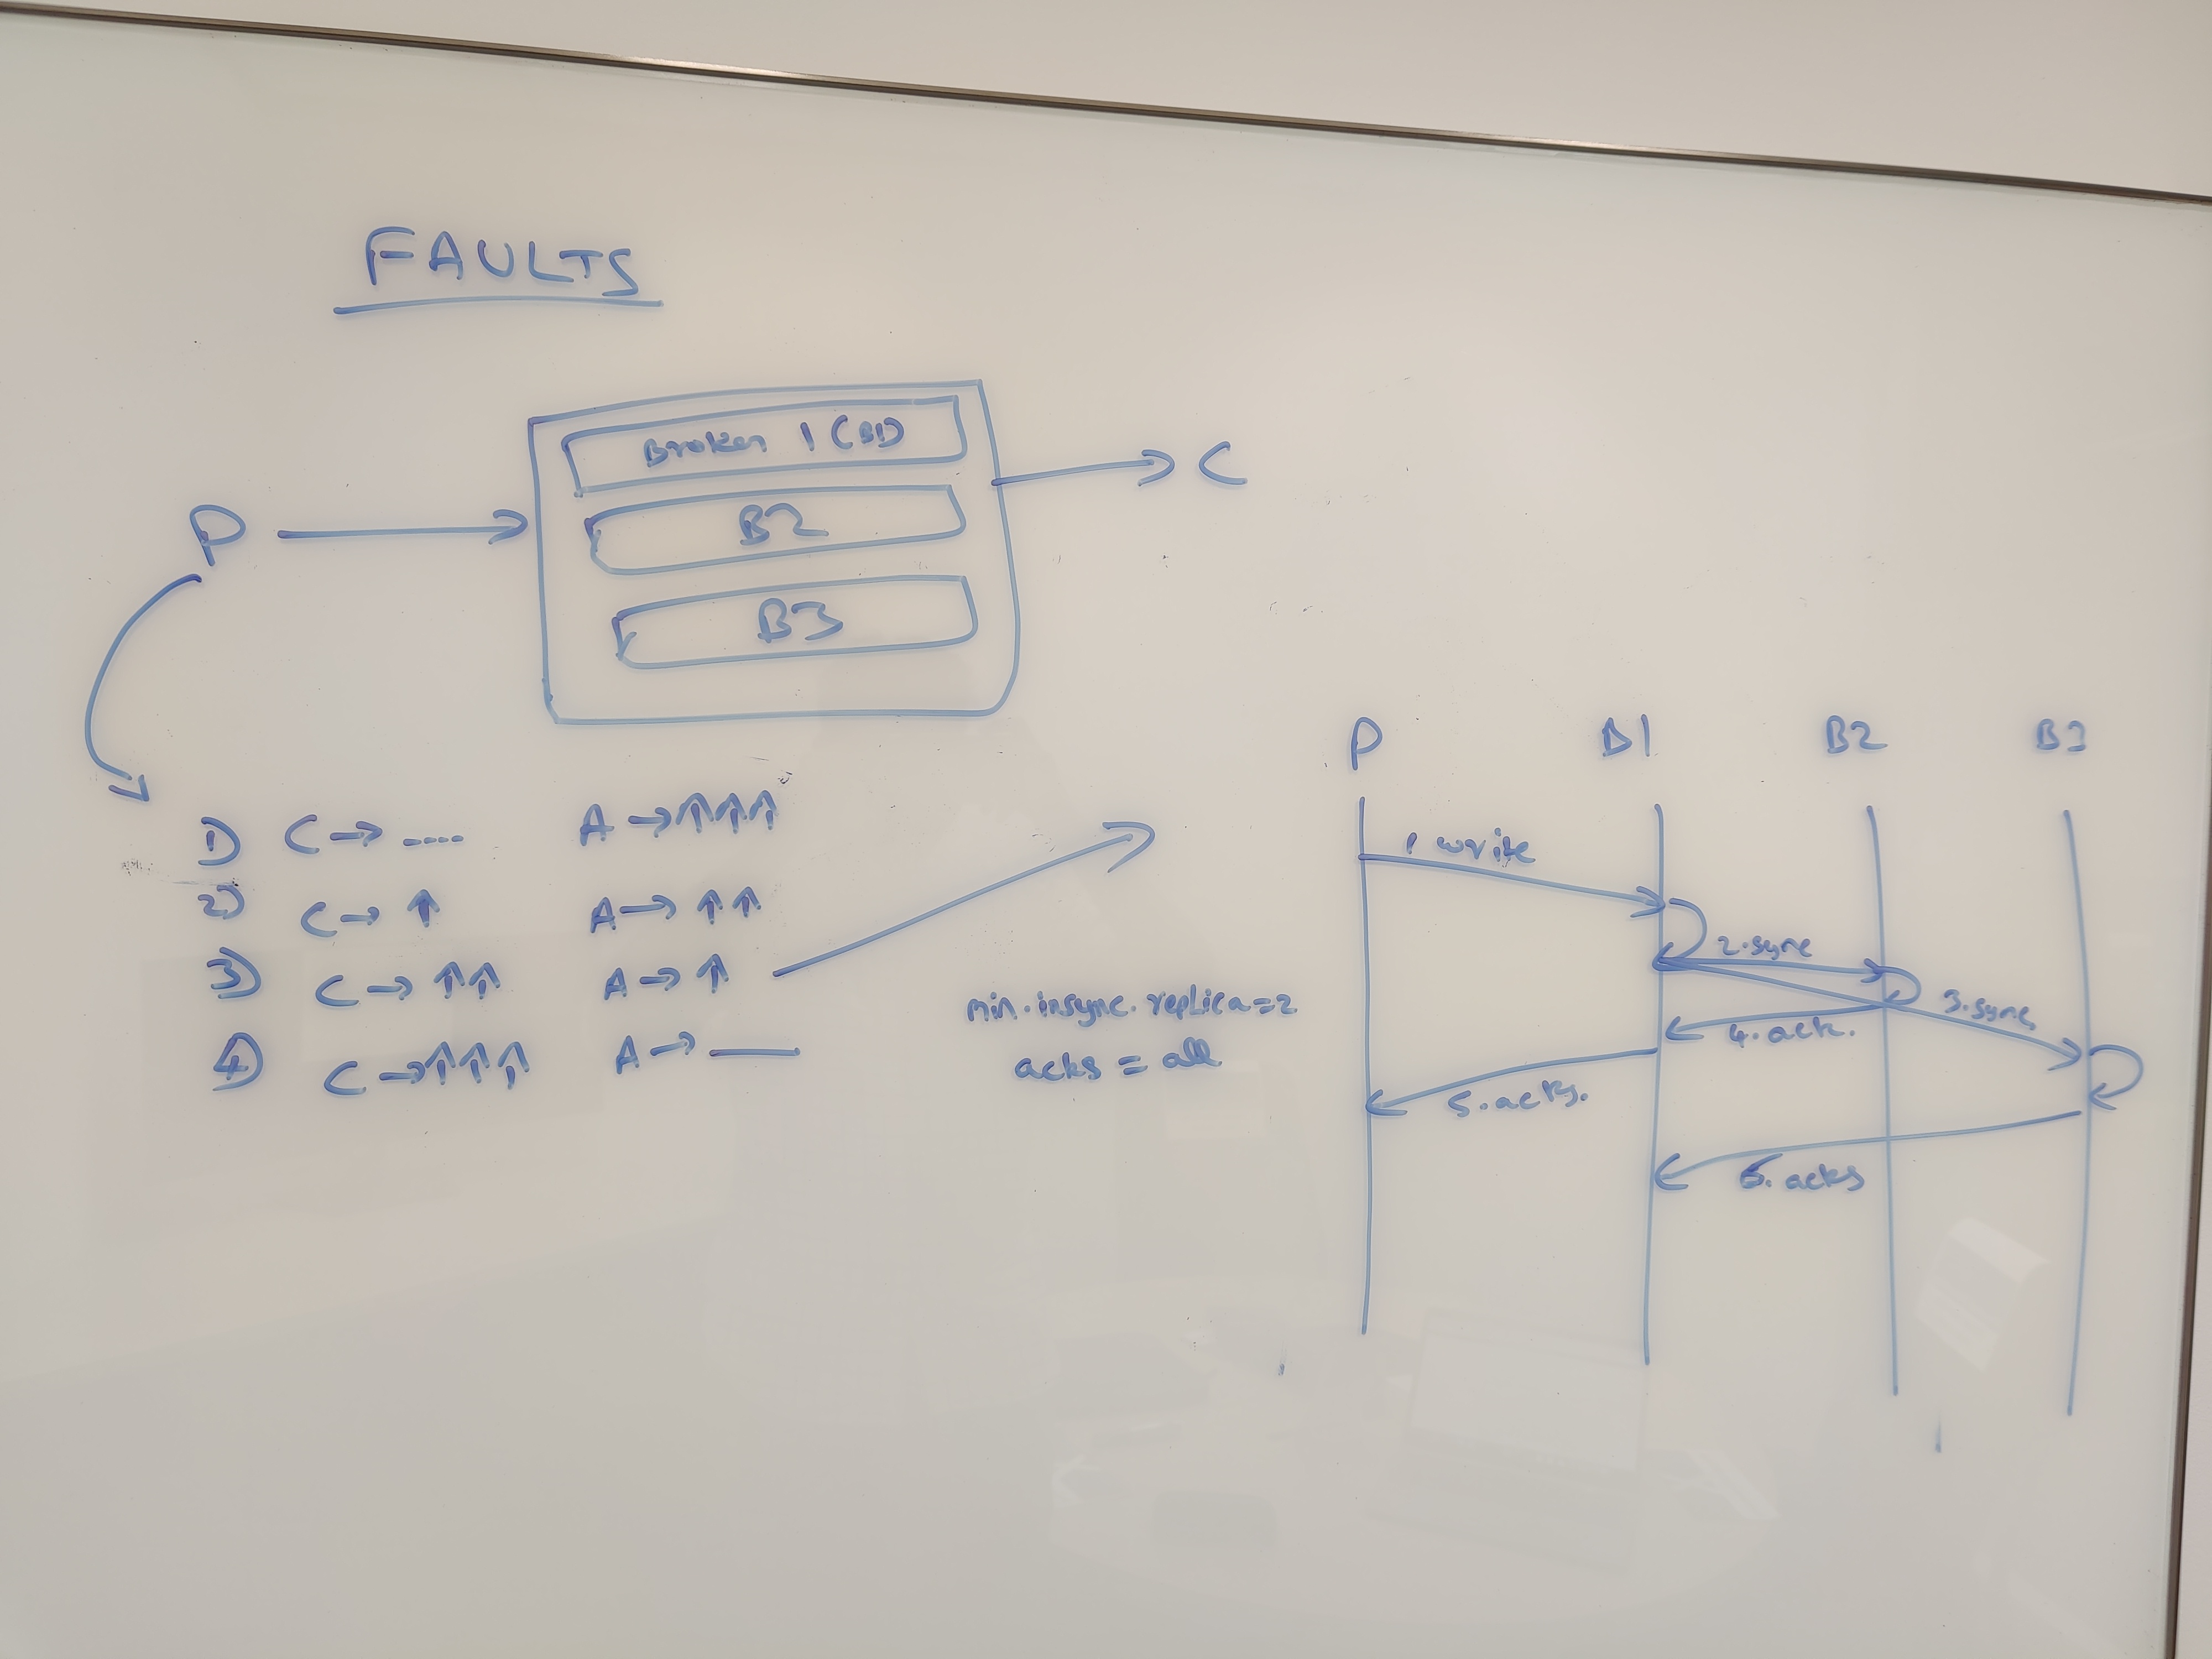 FAULTS
Broker 1 (B1)
B2
B3
P
C
1) C → .... A → ↑↑↑
2) C → ↑ A → ↑↑
3) C → ↑↑ A → ↑
4) C → ↑↑↑ A → —
min.insync.replica=2
acks = all
P B1 B2 B3
1 write
2.sync
3.sync
4.ack.
5.acks.
6.acks